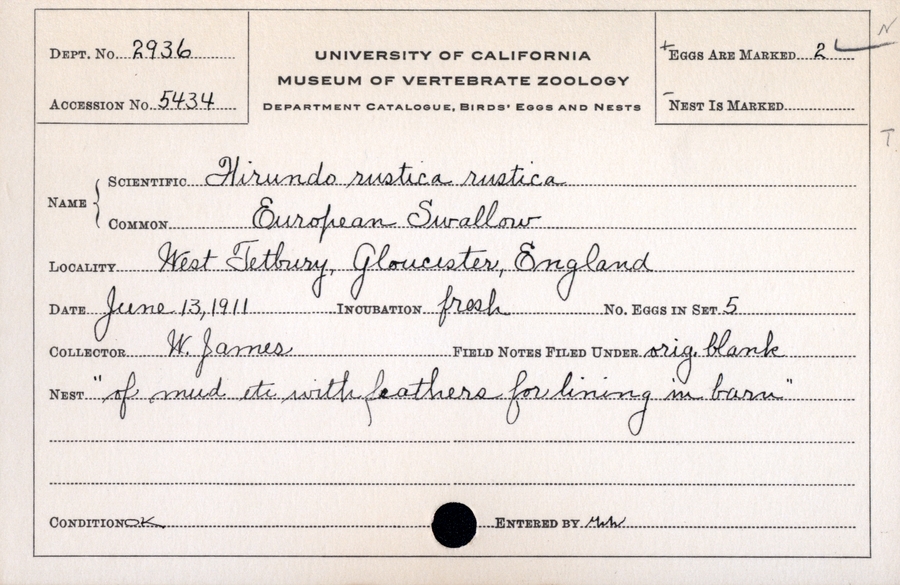 Dept. No. 2936
Accession No. 5434
University of California
Museum of Vertebrate Zoology
Department Catalogue, Birds' Eggs and Nests
+Eggs Are Marked 2
-Nest Is Marked
N
T.
Name
Scientific Hirundo rustica rustica
Common European Swallow
Locality West Tetbury, Gloucester, England
Date June 13, 1911 Incubation fresh No. Eggs in Set 5
Collector W. James Field Notes Filed Under orig. blank
Nest "of mud etc with feathers for lining in barn"
Condition OK Entered by